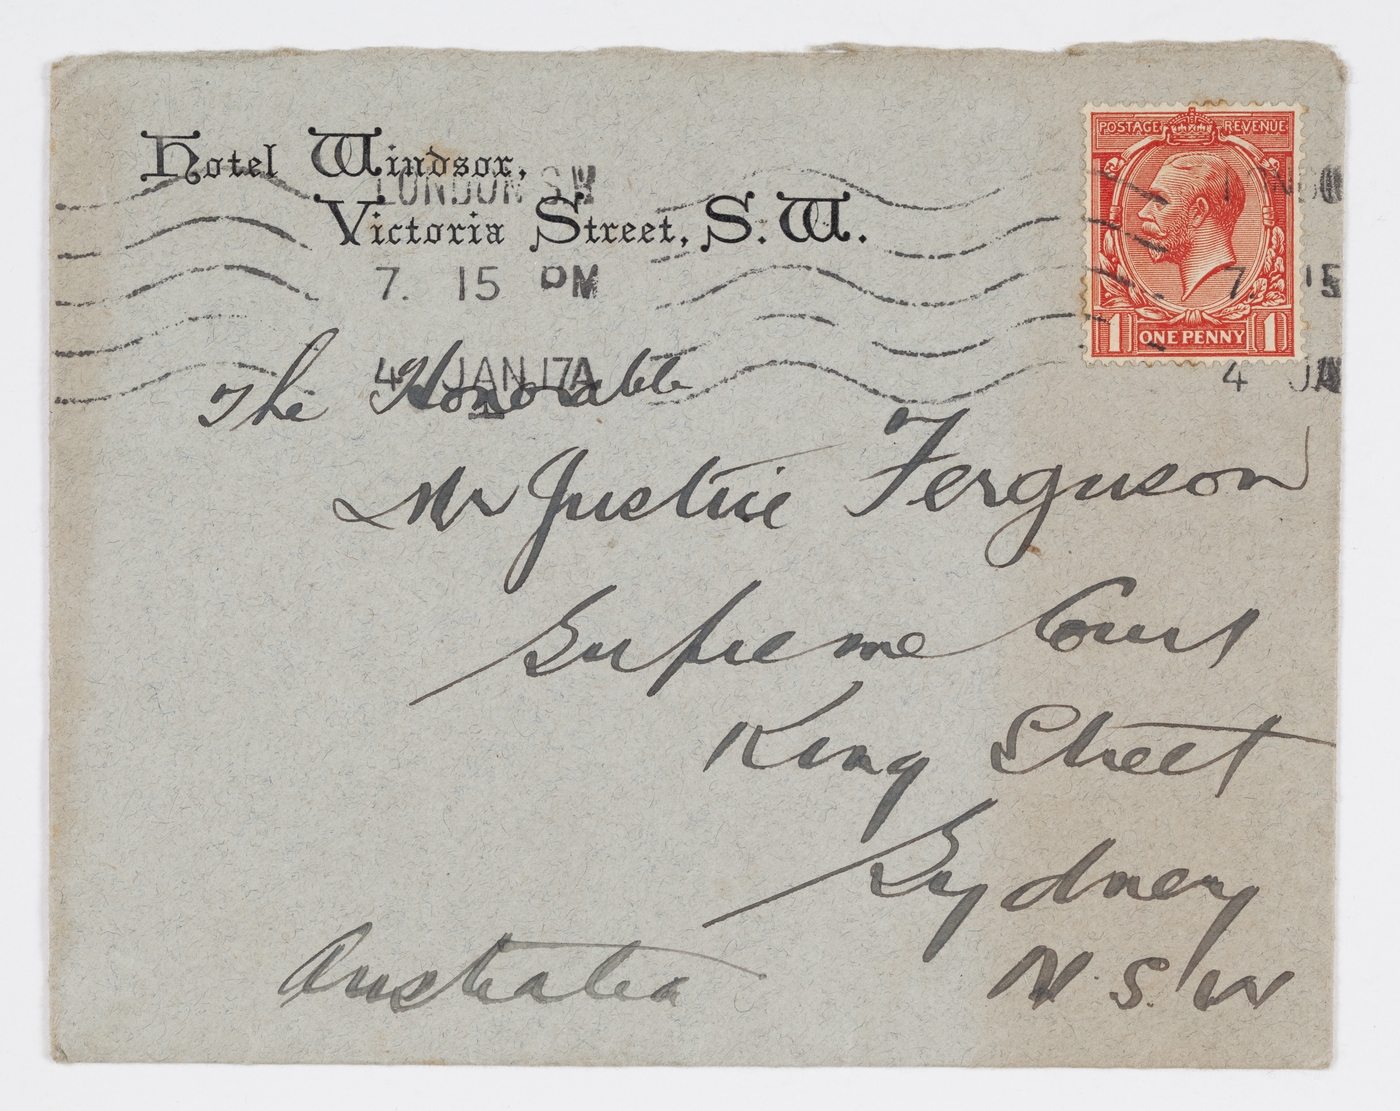 Hotel Windsor,
Victoria Street, S.W.
LONDON S.W
7. 15 PM
4 JAN 17A
POSTAGE REVENUE
1 ONE PENNY 1
LONDO
7. 15
4 JA
The Honorable
Mr Justice Ferguson
Supreme Court
King Street
Sydney
N.S.W
Australia